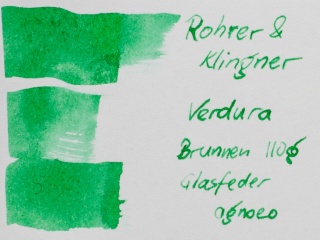 Rohrer &
Klingner
Verdura
Brunnen 110g
Glasfeder
agnoeo